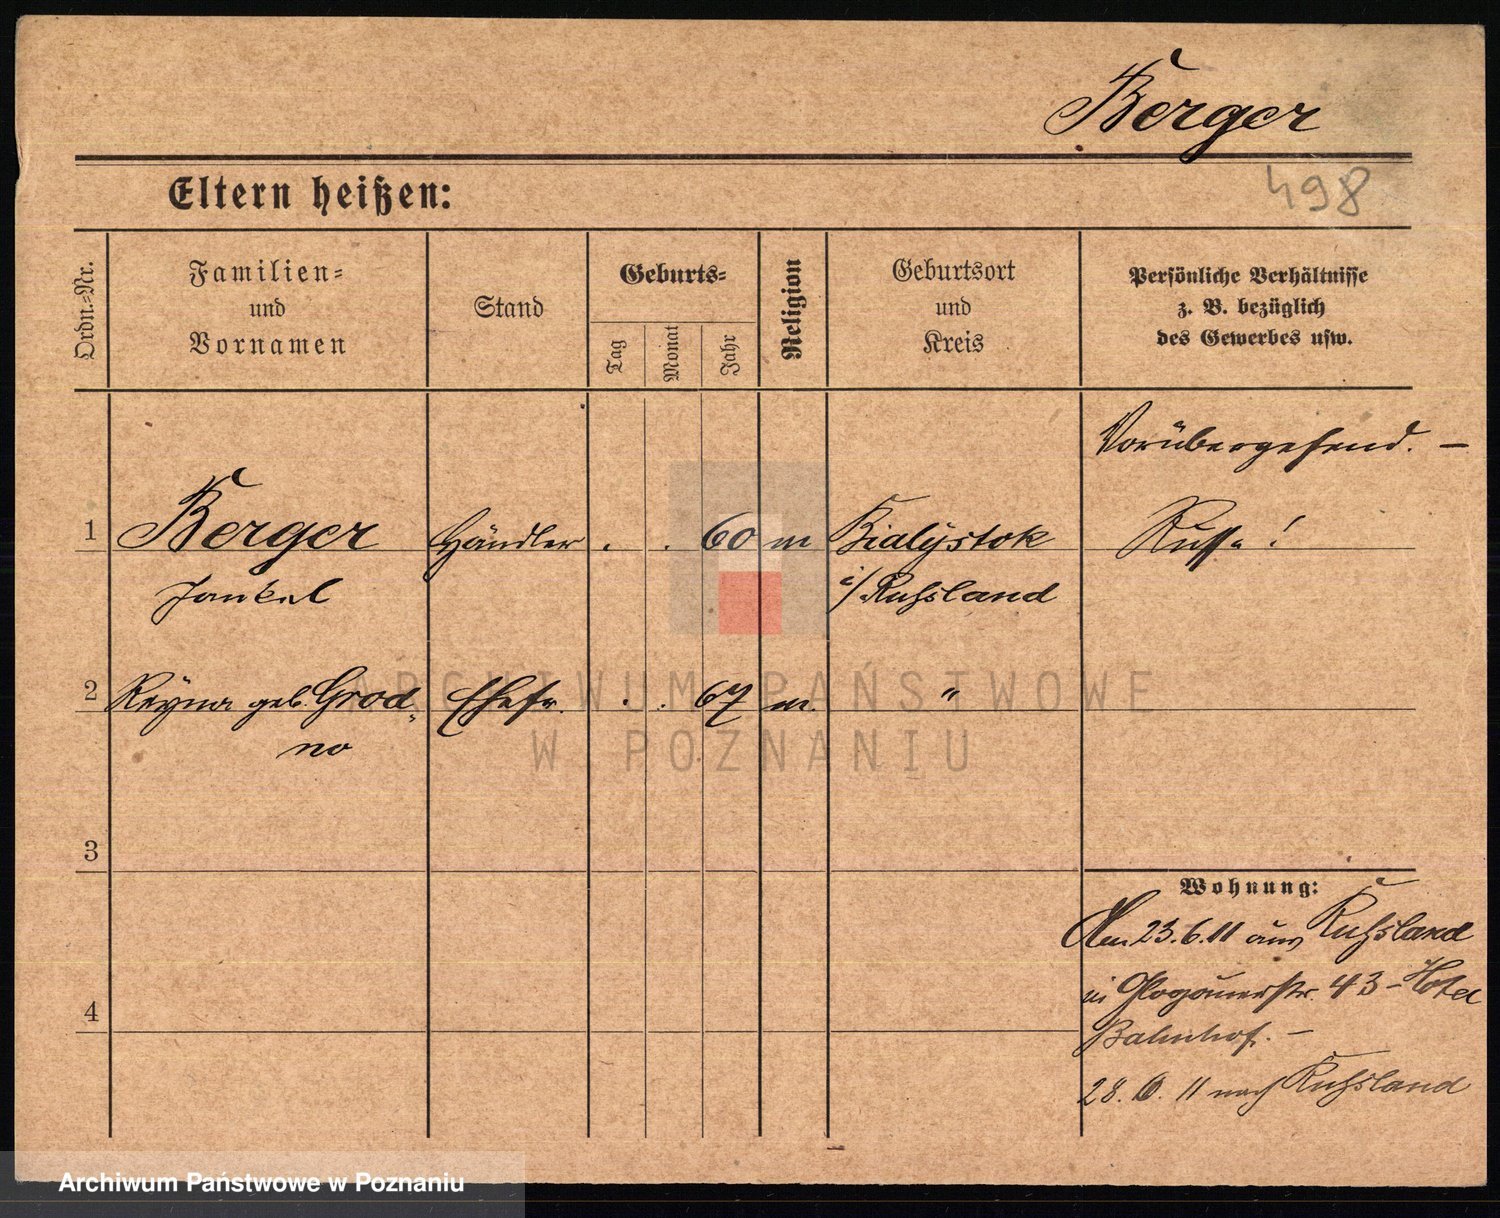 Berger
498
Eltern heißen:
Ordn.-Nr.
Familien- und Vornamen
Stand
Geburts-
Tag
Monat
Jahr
Religion
Geburtsort und Kreis
Persönliche Verhältnisse z. B. bezüglich des Gewerbes usw.
Vorübergehend. –
1 Berger Händler . . 60 m Bialystok Russe!
Jankel i/Rußland
2 Reyna geb. Grod- Ehefr. . . 67 m. "
no
ARCHIWUM PAŃSTWOWE
W POZNANIU
3
Wohnung:
Am 23.6.11 aus Rußland
in Glogauerstr. 43 – Hotel
4
Bahnhof. –
28. 6. 11 nach Rußland
Archiwum Państwowe w Poznaniu